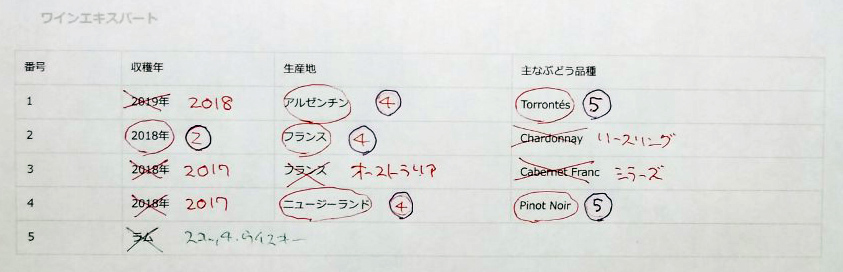 ワインエキスパート
番号 収穫年 生産地 主なぶどう品種
1 2019年 2018 アルゼンチン ④ Torrontés ⑤
2 2018年 ② フランス ④ Chardonnay リースリング
3 2018年 2017 フランス オーストラリア Cabernet Franc シラーズ
4 2018年 2017 ニュージーランド ④ Pinot Noir ⑤
5 ラム スコッチ・ウイスキー